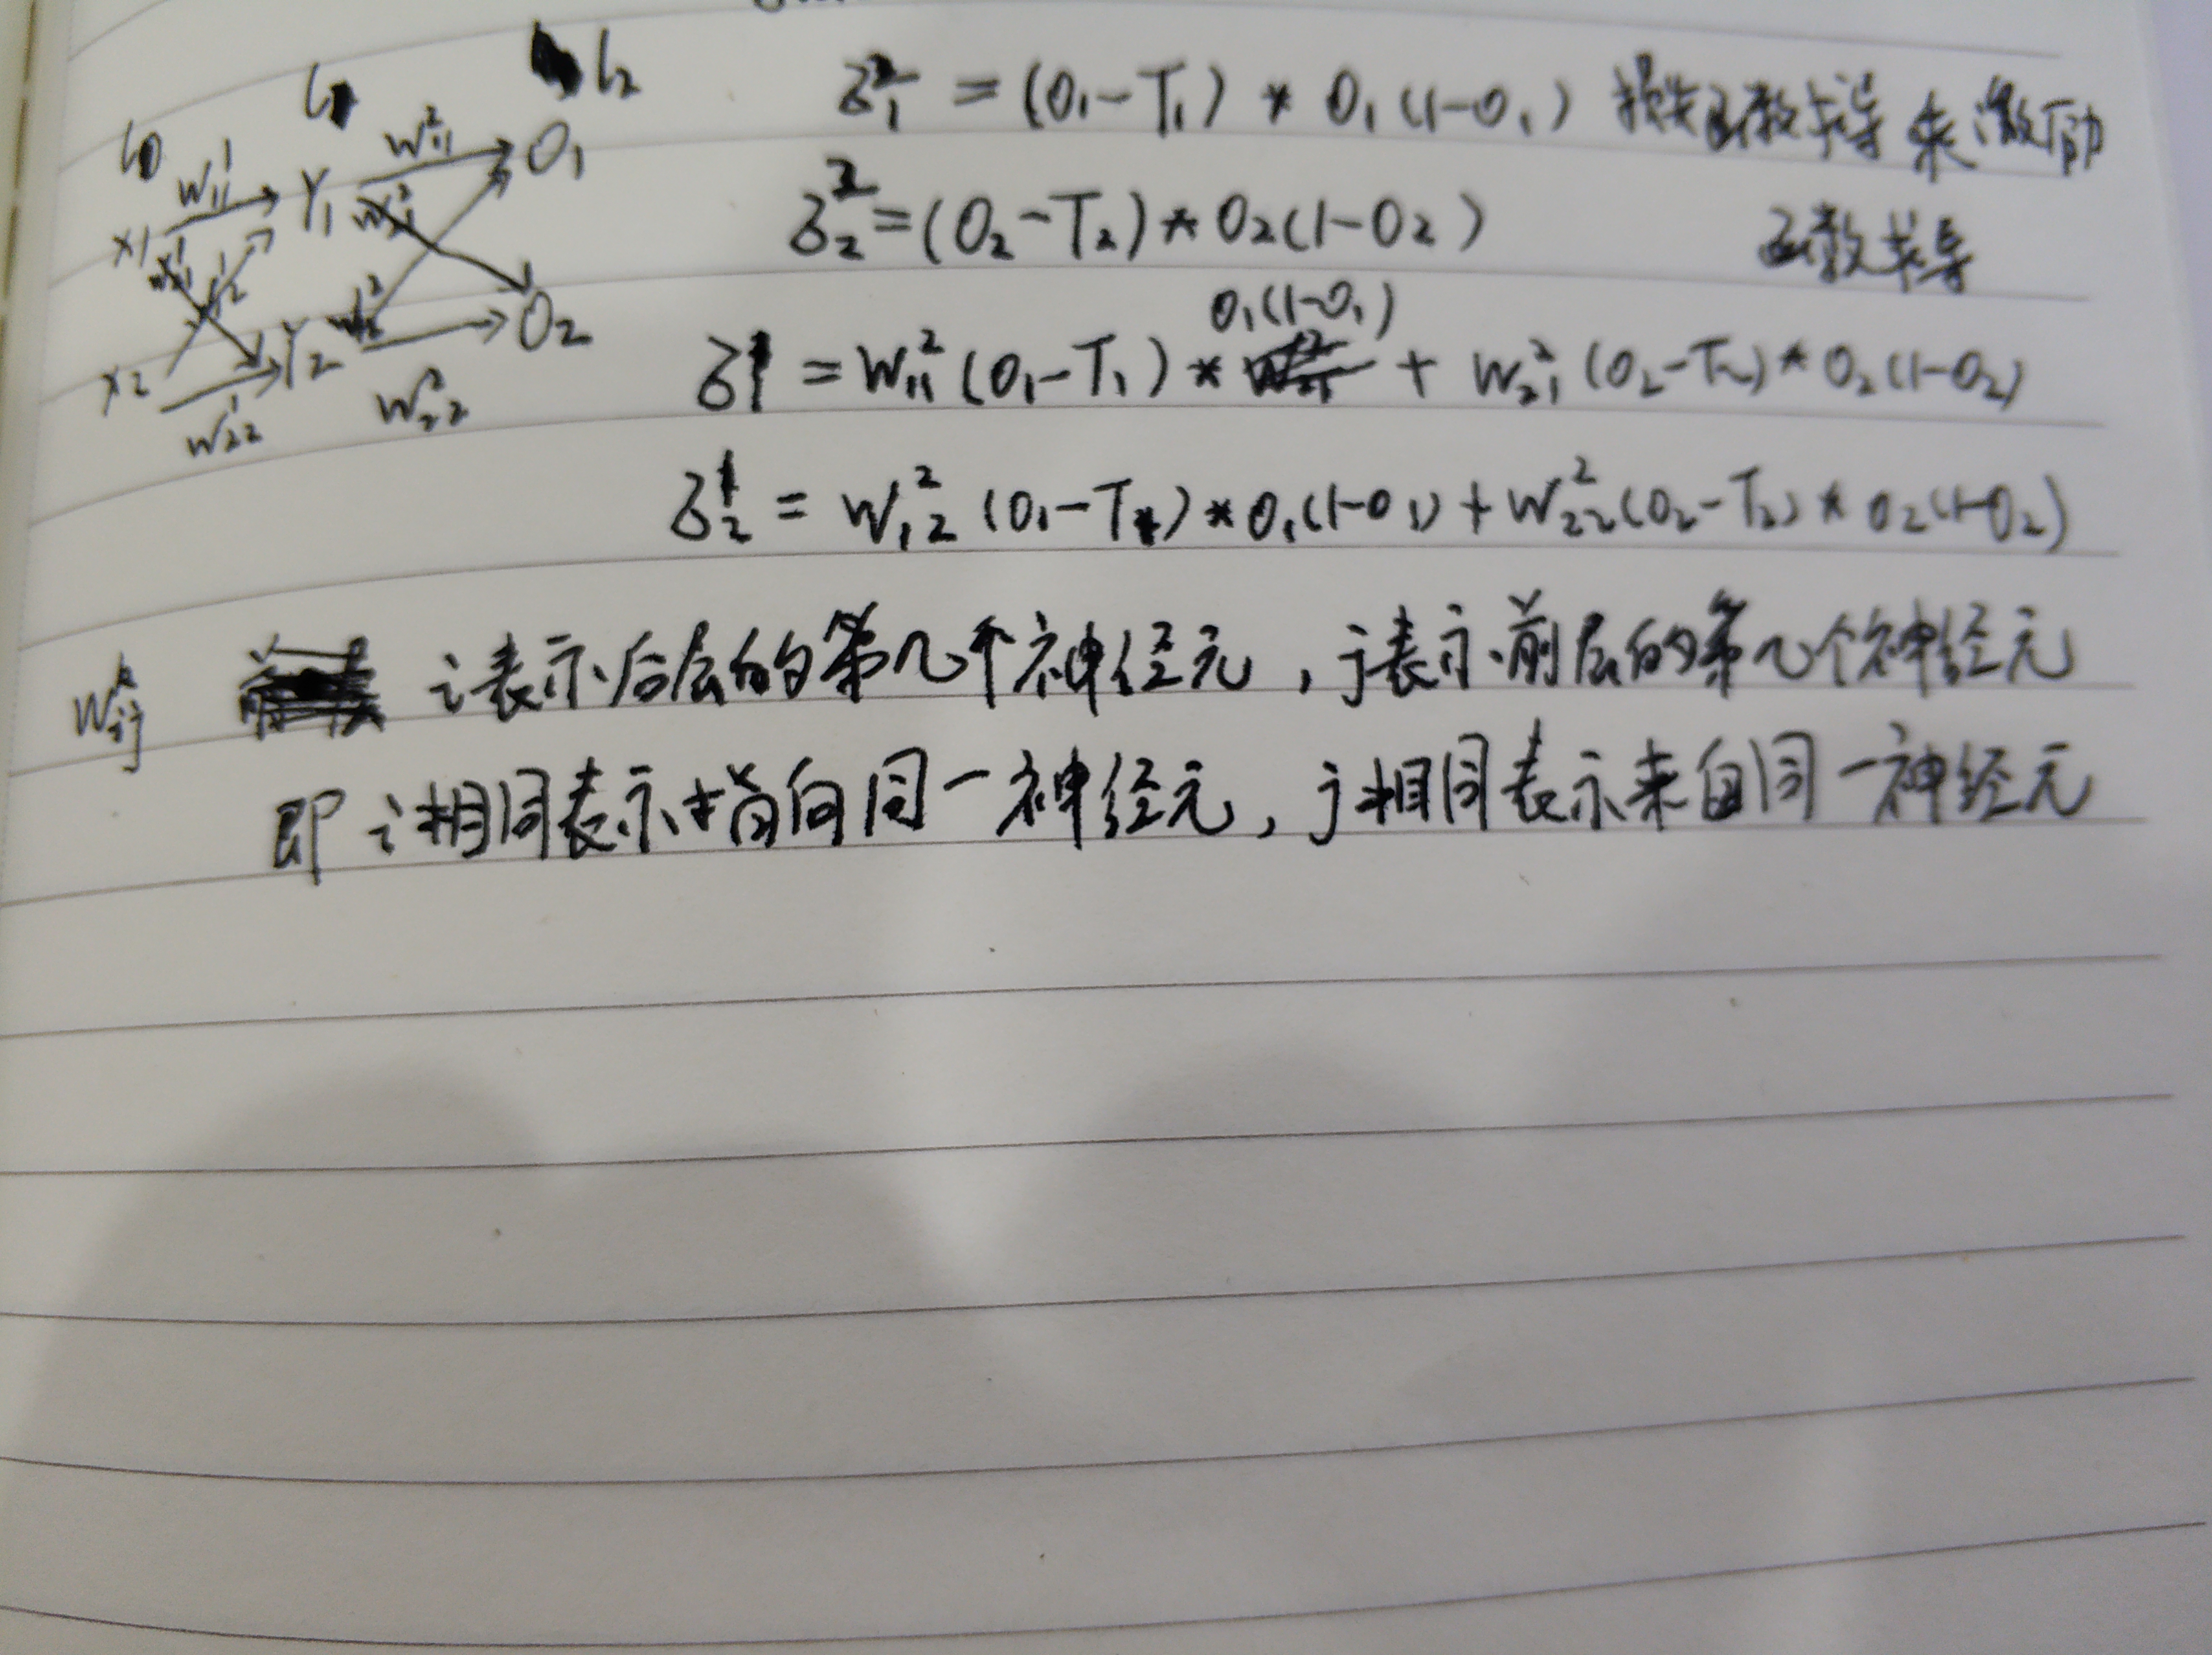 l₀ l₁ l₂
x₁ w¹₁₁ Y₁ w²₁₁ O₁
w¹₂₁ w¹₁₂ w²₂₁ w²₁₂
x₂ w¹₂₂ Y₂ w²₂₂ O₂
δ²₁ = (O₁-T₁) * O₁(1-O₁) 损失函数求导 乘 激励
函数求导
δ²₂ = (O₂-T₂) * O₂(1-O₂)
δ¹₁ = w²₁₁(O₁-T₁) * O₁(1-O₁) + w²₂₁(O₂-T₂) * O₂(1-O₂)
δ¹₂ = w²₁₂(O₁-T₁) * O₁(1-O₁) + w²₂₂(O₂-T₂) * O₂(1-O₂)
wᵏᵢⱼ i表示后层的第几个神经元，j表示前层的第几个神经元
即i相同表示指向同一神经元，j相同表示来自同一神经元